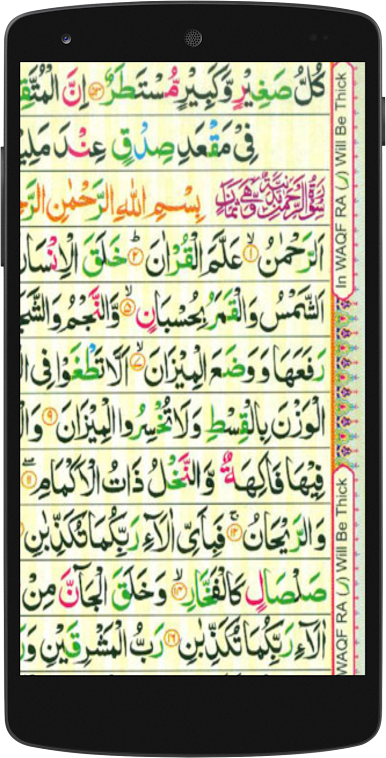 كُلُّ صَغِيْرٍ وَّكَبِيْرٍ مُّسْتَطَرٌ ﴿۵۳﴾ اِنَّ الْمُتَّقِ
فِيْ مَقْعَدِ صِدْقٍ عِنْدَ مَلِيْ
سُوْرَةُ الرَّحْمٰنِ مَدَنِيَّةٌ وَّهِيَ بِسْمِ اللّٰهِ الرَّحْمٰنِ الرَّح
اَلرَّحْمٰنُ ﴿۱﴾ عَلَّمَ الْقُرْاٰنَ ﴿۲﴾ خَلَقَ الْاِنْسَانَ
اَلشَّمْسُ وَالْقَمَرُ بِحُسْبَانٍ ﴿۵﴾ وَّالنَّجْمُ وَالشَّجَ
رَفَعَهَا وَوَضَعَ الْمِيْزَانَ ﴿۷﴾ اَلَّا تَطْغَوْا فِي ال
الْوَزْنَ بِالْقِسْطِ وَلَا تُخْسِرُوا الْمِيْزَانَ ﴿۹﴾ وَالْ
فِيْهَا فَاكِهَةٌ وَّالنَّخْلُ ذَاتُ الْاَكْمَامِ ﴿۱۱﴾
وَالرَّيْحَانُ ﴿۱۲﴾ فَبِاَيِّ اٰلَآءِ رَبِّكُمَا تُكَذِّبٰنِ
صَلْصَالٍ كَالْفَخَّارِ ﴿۱۴﴾ وَخَلَقَ الْجَآنَّ مِنْ
اٰلَآءِ رَبِّكُمَا تُكَذِّبٰنِ ﴿۱۶﴾ رَبُّ الْمَشْرِقَيْنِ وَرَ
In WAQF RA (ر) Will Be Thick
WAQF RA (ر) Will Be Thick